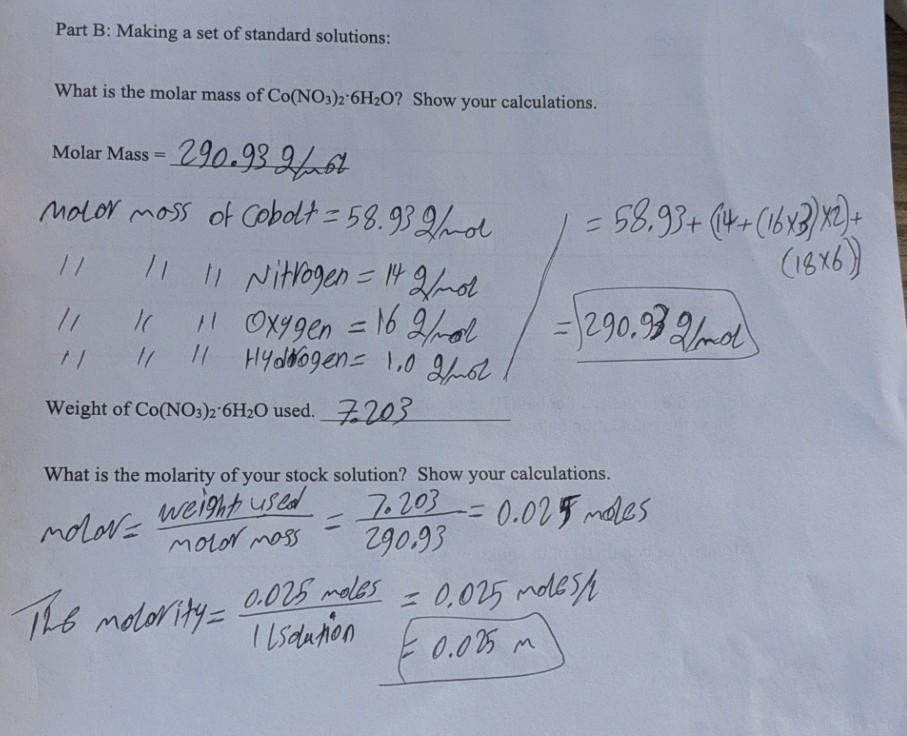 Part B: Making a set of standard solutions:
What is the molar mass of Co(NO₃)₂·6H₂O? Show your calculations.
Molar Mass = 290.93 g/mol
Molar mass of Cobolt = 58.93 g/mol
" " " Nitrogen = 14 g/mol
" " " Oxygen = 16 g/mol
" " " Hydrogen = 1.0 g/mol
= 58.93 + (14 + (16x3)x2) +
(18x6))
= 290.93 g/mol
Weight of Co(NO₃)₂·6H₂O used. 7.203
What is the molarity of your stock solution? Show your calculations.
molar = weight used / molar mass = 7.203 / 290.93 = 0.025 moles
The molarity = 0.025 moles / 1 L solution = 0.025 moles/L
= 0.025 M